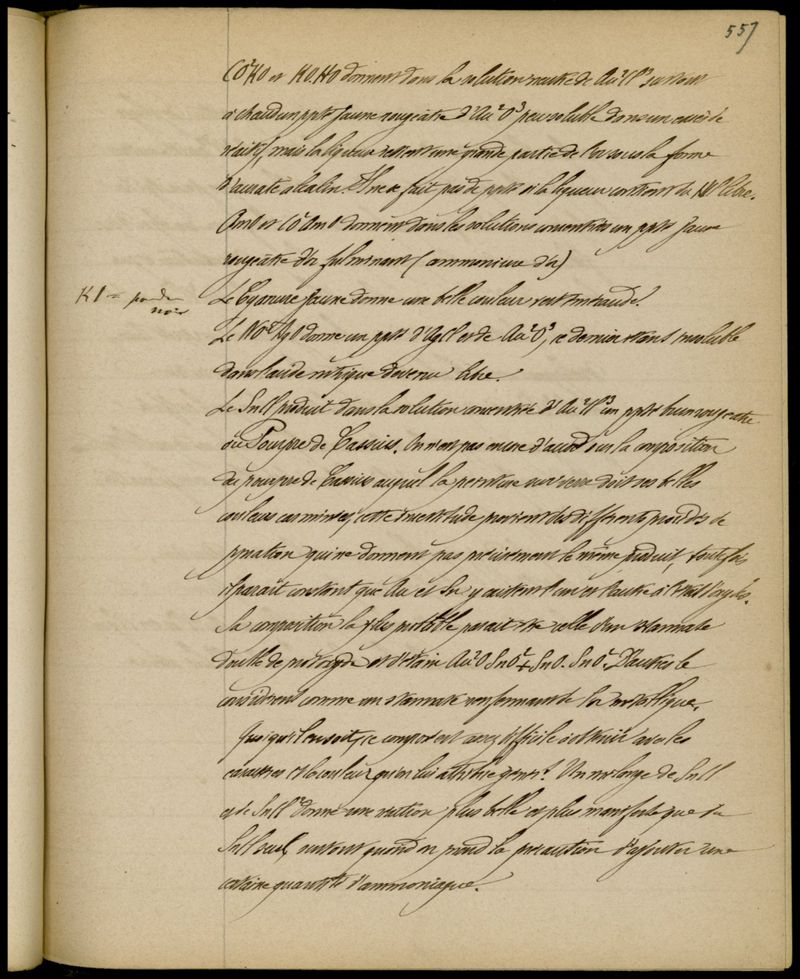 557
CO²KO et KO.HO donnent dans la solution neutre de Au²Cl³ surtout
à chaud un ppté jaune rougeâtre d'Au²O³ peu soluble dans un excès de
réactif, mais la liqueur retient une grande partie de l'or sous la forme
d'aurate alcalin. Il ne se fait pas de ppté si la liqueur contient de libre.
AmO et CO²AmO donnent dans les solutions concentrées un ppté jaune
rougeâtre d'or fulminant (ammoniure d'or)
KI = poudre
noir
Le Cyanure jaune donne une belle couleur vert émeraude.
Le NO⁵AgO donne un ppté d'AgCl et de Au²O³, ce dernier étant insoluble
dans l'acide nitrique devenu libre.
Le SnCl produit dans la solution concentrée d'Au²Cl³ un ppté brun rougeâtre
ou Pourpre de Cassius. On n'est pas encore d'accord sur la composition
du pourpre de Cassius auquel la peinture sur verre doit ses belles
couleurs carminées, cette incertitude provient des différents procédés de
pration qui ne donnent pas précisément le même produit, toutefois
il paraît constant que Au et Sn y existent l'un et l'autre à l'état oxydé.
La composition la plus probable paraît être celle d'un stannate
double de protoxyde et d'étain Au²O.SnO² + SnO.SnO². D'autres le
considèrent comme un stannate renfermant de l'or métallique.
Quoiqu'il en soit, ce composé est assez difficile à obtenir avec les
caractères et la couleur qu'on lui attribue génért. Un mélange de SnCl
et de SnCl² donne une réaction plus belle et plus manifeste que du
SnCl seul, surtout quand on prend la précaution d'ajouter une
certaine quantité d'ammoniaque.